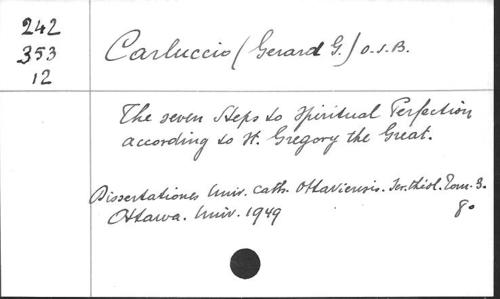 242
353
12
Carluccio (Gerard G.) O.S.B.
The seven Steps to Spiritual Perfection
according to St. Gregory the Great.
Dissertationes Univ. Cath. Ottaviensis. Ser. théol. Tom. 3.
Ottawa. Univ. 1949 8°